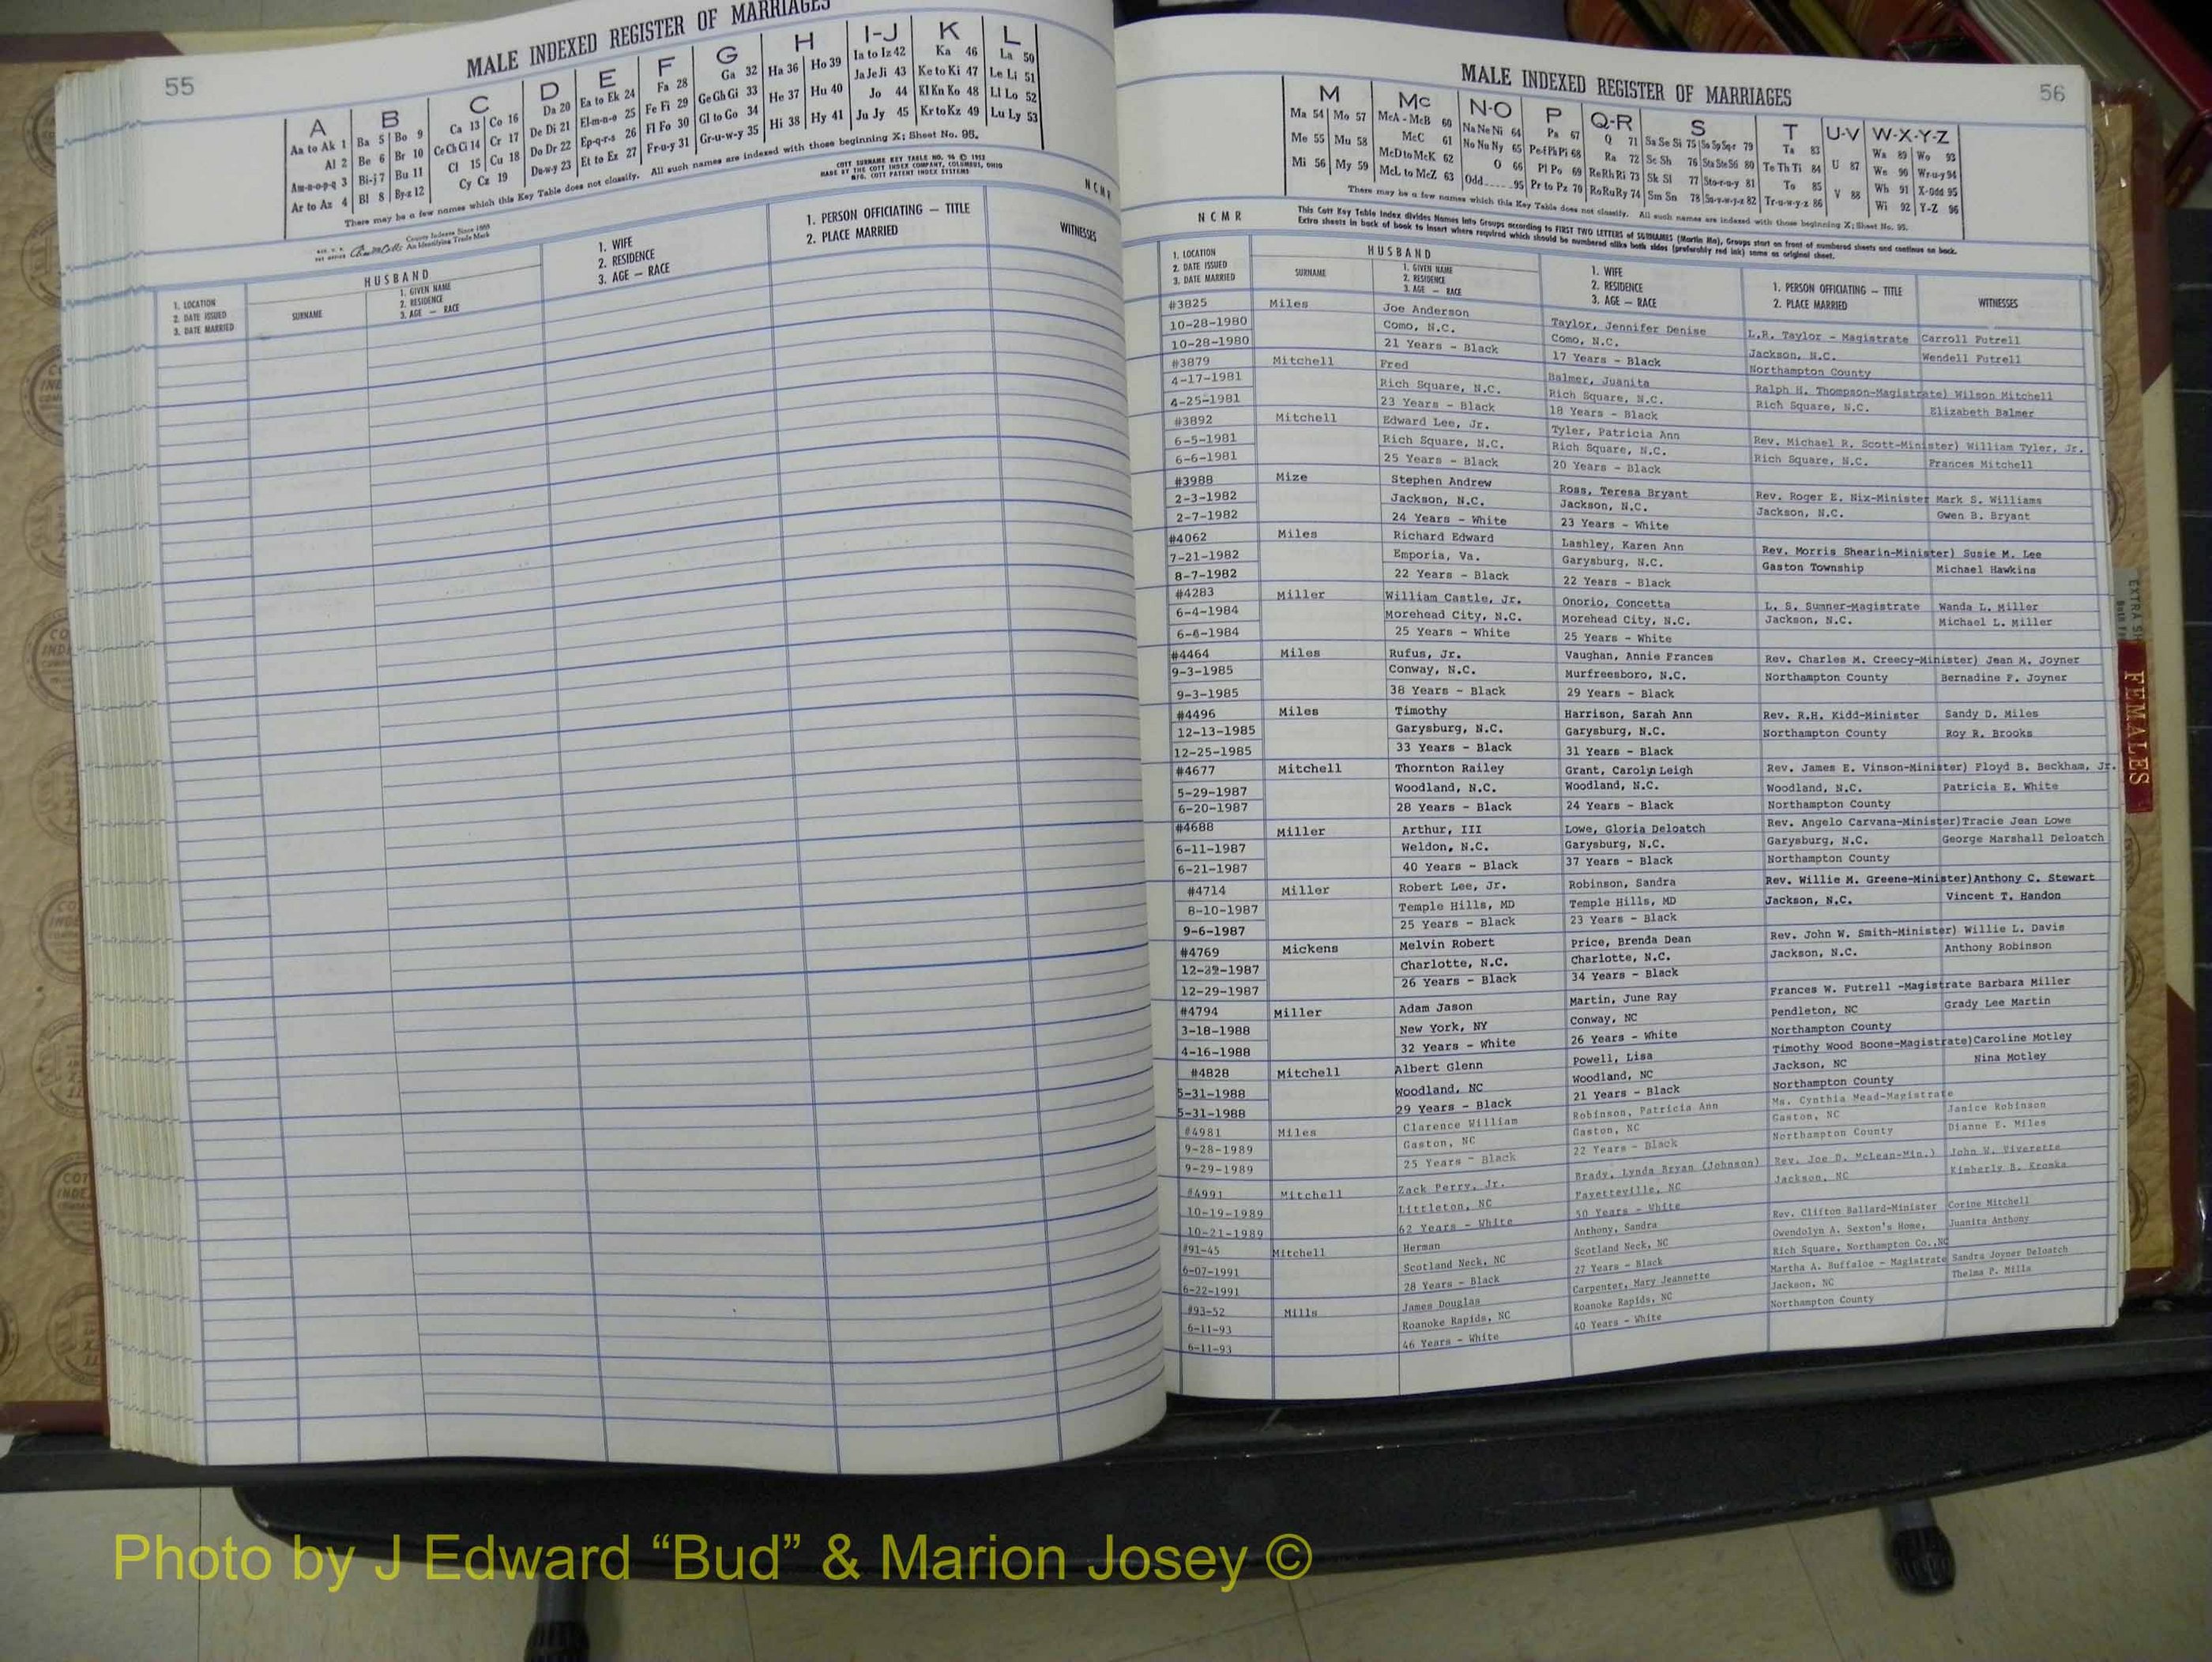 55
MALE INDEXED REGISTER OF MARRIAGES
A B C D E F G H I-J K L
Aa to Ak 1 Ba 5 Bo 9 Ca 13 Co 16 Da 20 Ea to Ek 24 Fa 28 Ga 32 Ha 36 Ho 39 Ia to Iz 42 Ka 46 La 50
Al 2 Be 6 Br 10 Ce Ch Ci 14 Cr 17 De Di 21 El-m-n-o 25 Fe Fi 29 Ge Gh Gi 33 He 37 Hu 40 Ja Je Ji 43 Ke to Ki 47 Le Li 51
Am-n-o-p-q 3 Bi-j 7 Bu 11 Cl 15 Cu 18 Do Dr 22 Ep-q-r-s 26 Fl Fo 30 Gl to Go 34 Hi 38 Hy 41 Jo 44 Kl Kn Ko 48 Ll Lo 52
Ar to Az 4 Bl 8 By-z 12 Cy Cz 19 Du-w-y 23 Et to Ez 27 Fr-u-y 31 Gr-u-w-y 35 Ju Jy 45 Kr to Kz 49 Lu Ly 53
There may be a few names which this Key Table does not classify. All such names are indexed with those beginning X; Sheet No. 95.
County Indexes Since 1888
An Identifying Trade Mark
COTT SURNAME KEY TABLE NO. 96 © 1952
MADE BY THE COTT INDEX COMPANY, COLUMBUS, OHIO
MFG. COTT PATENT INDEX SYSTEMS
NCMR
1. LOCATION
2. DATE ISSUED
3. DATE MARRIED
HUSBAND
SURNAME
1. GIVEN NAME
2. RESIDENCE
3. AGE — RACE
1. WIFE
2. RESIDENCE
3. AGE — RACE
1. PERSON OFFICIATING — TITLE
2. PLACE MARRIED
WITNESSES
MALE INDEXED REGISTER OF MARRIAGES
56
M Mc N-O P Q-R S T U-V W-X-Y-Z
Ma 54 Mo 57 McA - McB 60 Na Ne Ni 64 Pa 67 Q 71 Sa Se Si 75 So Sp Sq-r 79 Ta 83 Wa 89 Wo 93
Me 55 Mu 58 McC 61 No Nu Ny 65 Pe-f Ph Pi 68 Ra 72 Sc Sh 76 Sta Ste Sti 80 Te Th Ti 84 U 87 We 90 Wr-u-y 94
Mi 56 My 59 McD to McK 62 O 66 Pl Po 69 Re Rh Ri 73 Sk Sl 77 Sto-r-u-y 81 To 85 V 88 Wh 91 X-Odd 95
McL to McZ 63 Odd 95 Pr to Pz 70 Ro Ru Ry 74 Sm Sn 78 Su-v-w-y-z 82 Tr-u-w-y-z 86 Wi 92 Y-Z 96
There may be a few names which this Key Table does not classify. All such names are indexed with those beginning X; Sheet No. 95.
NCMR
This Cott Key Table Index divides Names into Groups according to FIRST TWO LETTERS of SURNAMES (Martin Ma), Groups start on front of numbered sheets and continue on back.
Extra sheets in back of book to insert where required which should be numbered alike both sides (preferably red ink) same as original sheet.
1. LOCATION
2. DATE ISSUED
3. DATE MARRIED
HUSBAND
SURNAME
1. GIVEN NAME
2. RESIDENCE
3. AGE — RACE
1. WIFE
2. RESIDENCE
3. AGE — RACE
1. PERSON OFFICIATING — TITLE
2. PLACE MARRIED
WITNESSES
#3825 Miles Joe Anderson Taylor, Jennifer Denise L.R. Taylor - Magistrate Carroll Futrell
10-28-1980 Como, N.C. Como, N.C. Jackson, N.C. Wendell Futrell
10-28-1980 21 Years - Black 17 Years - Black Northampton County
#3879 Mitchell Fred Balmer, Juanita Ralph H. Thompson-Magistrate) Wilson Mitchell
4-17-1981 Rich Square, N.C. Rich Square, N.C. Rich Square, N.C. Elizabeth Balmer
4-25-1981 23 Years - Black 18 Years - Black
#3892 Mitchell Edward Lee, Jr. Tyler, Patricia Ann Rev. Michael R. Scott-Minister) William Tyler, Jr.
6-5-1981 Rich Square, N.C. Rich Square, N.C. Rich Square, N.C. Frances Mitchell
6-6-1981 25 Years - Black 20 Years - Black
#3988 Mize Stephen Andrew Ross, Teresa Bryant Rev. Roger E. Nix-Minister Mark S. Williams
2-3-1982 Jackson, N.C. Jackson, N.C. Jackson, N.C. Gwen B. Bryant
2-7-1982 24 Years - White 23 Years - White
#4062 Miles Richard Edward Lashley, Karen Ann Rev. Morris Shearin-Minister) Susie M. Lee
7-21-1982 Emporia, Va. Garysburg, N.C. Gaston Township Michael Hawkins
8-7-1982 22 Years - Black 22 Years - Black
#4283 Miller William Castle, Jr. Onorio, Concetta L. S. Sumner-Magistrate Wanda L. Miller
6-4-1984 Morehead City, N.C. Morehead City, N.C. Jackson, N.C. Michael L. Miller
6-6-1984 25 Years - White 25 Years - White
#4464 Miles Rufus, Jr. Vaughan, Annie Frances Rev. Charles M. Creecy-Minister) Jean M. Joyner
9-3-1985 Conway, N.C. Murfreesboro, N.C. Northampton County Bernadine F. Joyner
9-3-1985 38 Years - Black 29 Years - Black
#4496 Miles Timothy Harrison, Sarah Ann Rev. R.H. Kidd-Minister Sandy D. Miles
12-13-1985 Garysburg, N.C. Garysburg, N.C. Northampton County Roy R. Brooks
12-25-1985 33 Years - Black 31 Years - Black
#4677 Mitchell Thornton Railey Grant, Carolyn Leigh Rev. James E. Vinson-Minister) Floyd B. Beckham, Jr.
5-29-1987 Woodland, N.C. Woodland, N.C. Woodland, N.C. Patricia E. White
6-20-1987 28 Years - Black 24 Years - Black Northampton County
#4688 Miller Arthur, III Lowe, Gloria Deloatch Rev. Angelo Carvana-Minister) Tracie Jean Lowe
6-11-1987 Weldon, N.C. Garysburg, N.C. Garysburg, N.C. George Marshall Deloatch
6-21-1987 40 Years - Black 37 Years - Black Northampton County
#4714 Miller Robert Lee, Jr. Robinson, Sandra Rev. Willie M. Greene-Minister) Anthony C. Stewart
8-10-1987 Temple Hills, MD Temple Hills, MD Jackson, N.C. Vincent T. Handon
9-6-1987 25 Years - Black 23 Years - Black
#4769 Mickens Melvin Robert Price, Brenda Dean Rev. John W. Smith-Minister) Willie L. Davis
12-29-1987 Charlotte, N.C. Charlotte, N.C. Jackson, N.C. Anthony Robinson
12-29-1987 26 Years - Black 34 Years - Black
#4794 Miller Adam Jason Martin, June Ray Frances W. Futrell -Magistrate Barbara Miller
3-18-1988 New York, NY Conway, NC Pendleton, NC Grady Lee Martin
4-16-1988 32 Years - White 26 Years - White Northampton County
#4828 Mitchell Albert Glenn Powell, Lisa Timothy Wood Boone-Magistrate) Caroline Motley
5-31-1988 Woodland, NC Woodland, NC Jackson, NC Nina Motley
5-31-1988 29 Years - Black 21 Years - Black Northampton County
#4981 Miles Clarence William Robinson, Patricia Ann Ms. Cynthia Mead-Magistrate Janice Robinson
9-28-1989 Gaston, NC Gaston, NC Gaston, NC Dianne E. Miles
9-29-1989 25 Years - Black 22 Years - Black Northampton County
#4991 Mitchell Zack Perry, Jr. Brady, Lynda Bryan (Johnson) Rev. Joe D. McLean-Min.) John W. Viverette
10-19-1989 Littleton, NC Fayetteville, NC Jackson, NC Kimberly B. Kronka
10-21-1989 62 Years - White 50 Years - White
#91-45 Mitchell Herman Anthony, Sandra Rev. Clifton Ballard-Minister Corine Mitchell
6-07-1991 Scotland Neck, NC Scotland Neck, NC Gwendolyn A. Sexton's Home, Juanita Anthony
6-22-1991 28 Years - Black 27 Years - Black Rich Square, Northampton Co.,NC
#93-52 Mills James Douglas Carpenter, Mary Jeannette Martha A. Buffaloe - Magistrate Sandra Joyner Deloatch
6-11-93 Roanoke Rapids, NC Roanoke Rapids, NC Jackson, NC Thelma P. Mills
6-11-93 46 Years - White 40 Years - White Northampton County
EXTRA
FEMALES
Photo by J Edward “Bud” & Marion Josey ©